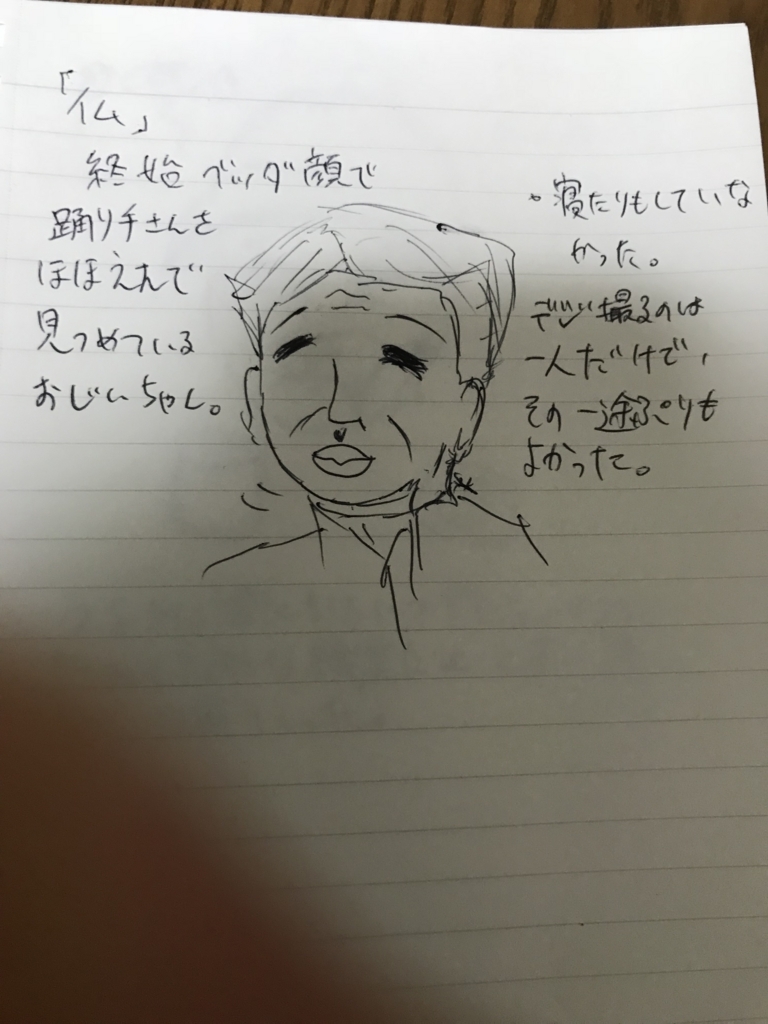 「仏」
終始 ブッダ顔で
踊り手さんを
ほほえんで
見つめている
おじいちゃん。
・寝たりもしていな
かった。
デジ撮るのは
一人だけで、
その一途ぶりも
よかった。